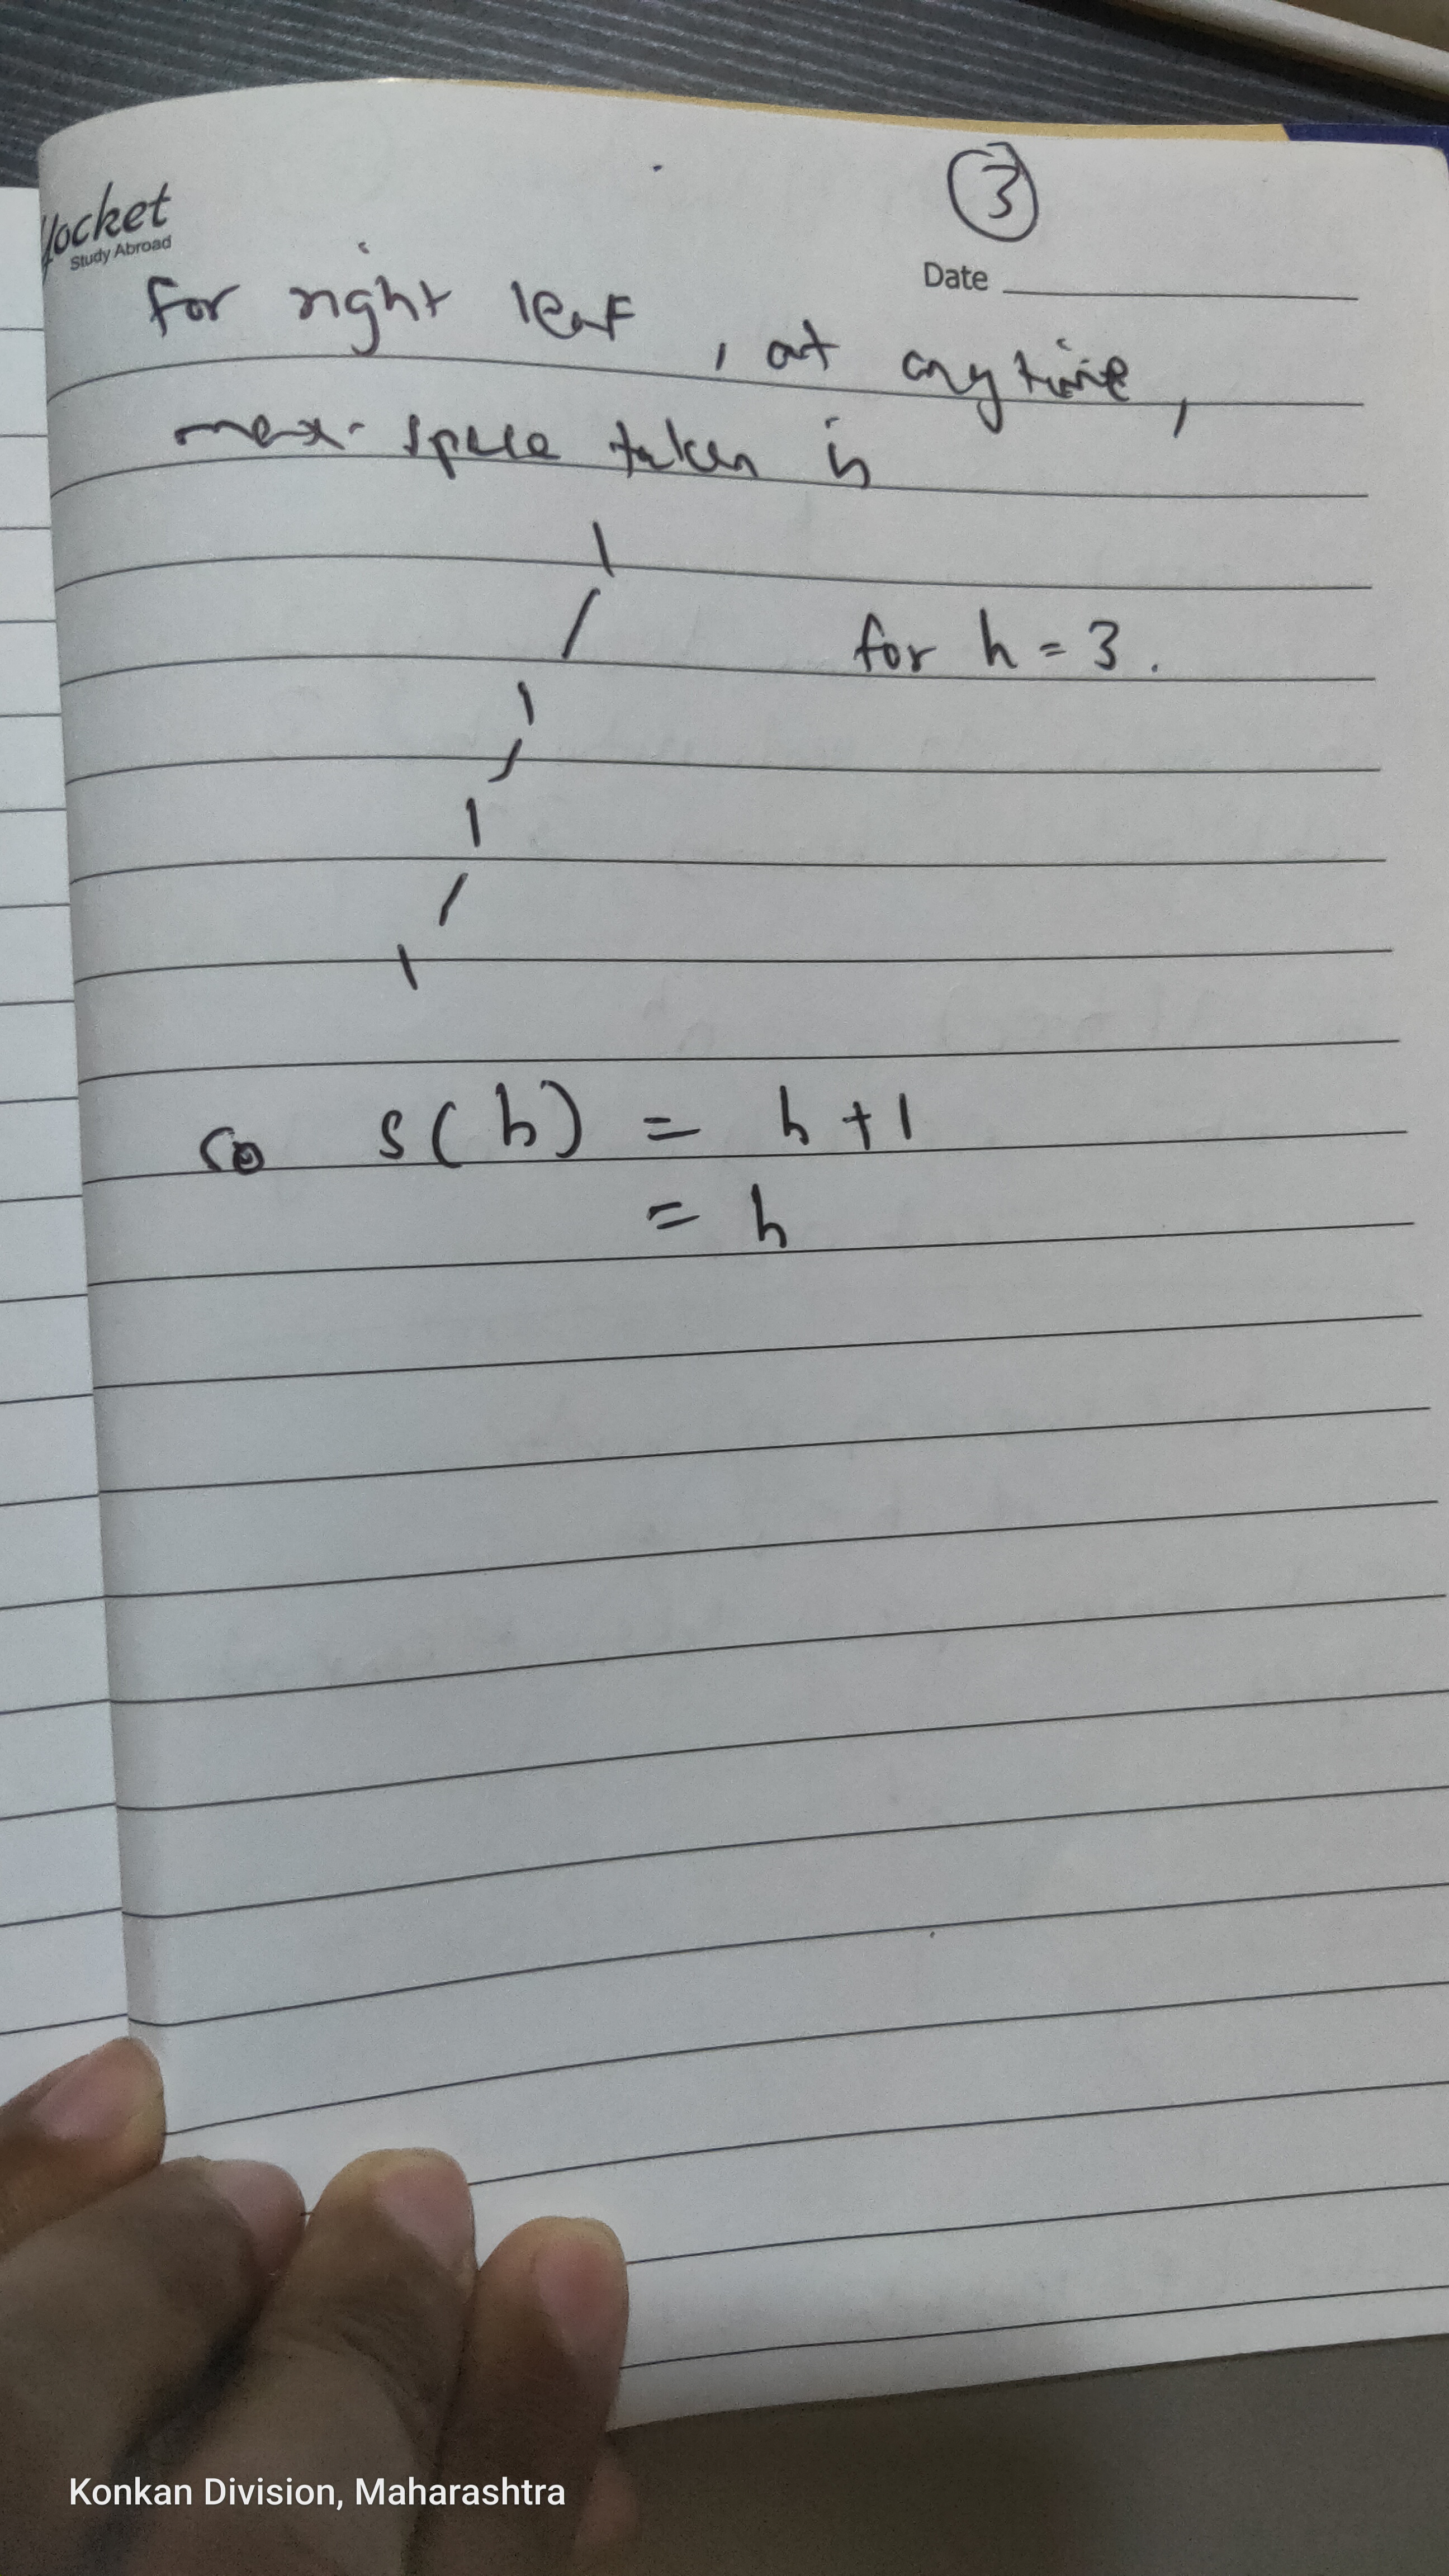 Yocket
Study Abroad
3
Date
for right leaf, at anytime,
max. space taken is
1
/
1
/
for h = 3.
1
/
1
so s(h) = h+1
= h
Konkan Division, Maharashtra